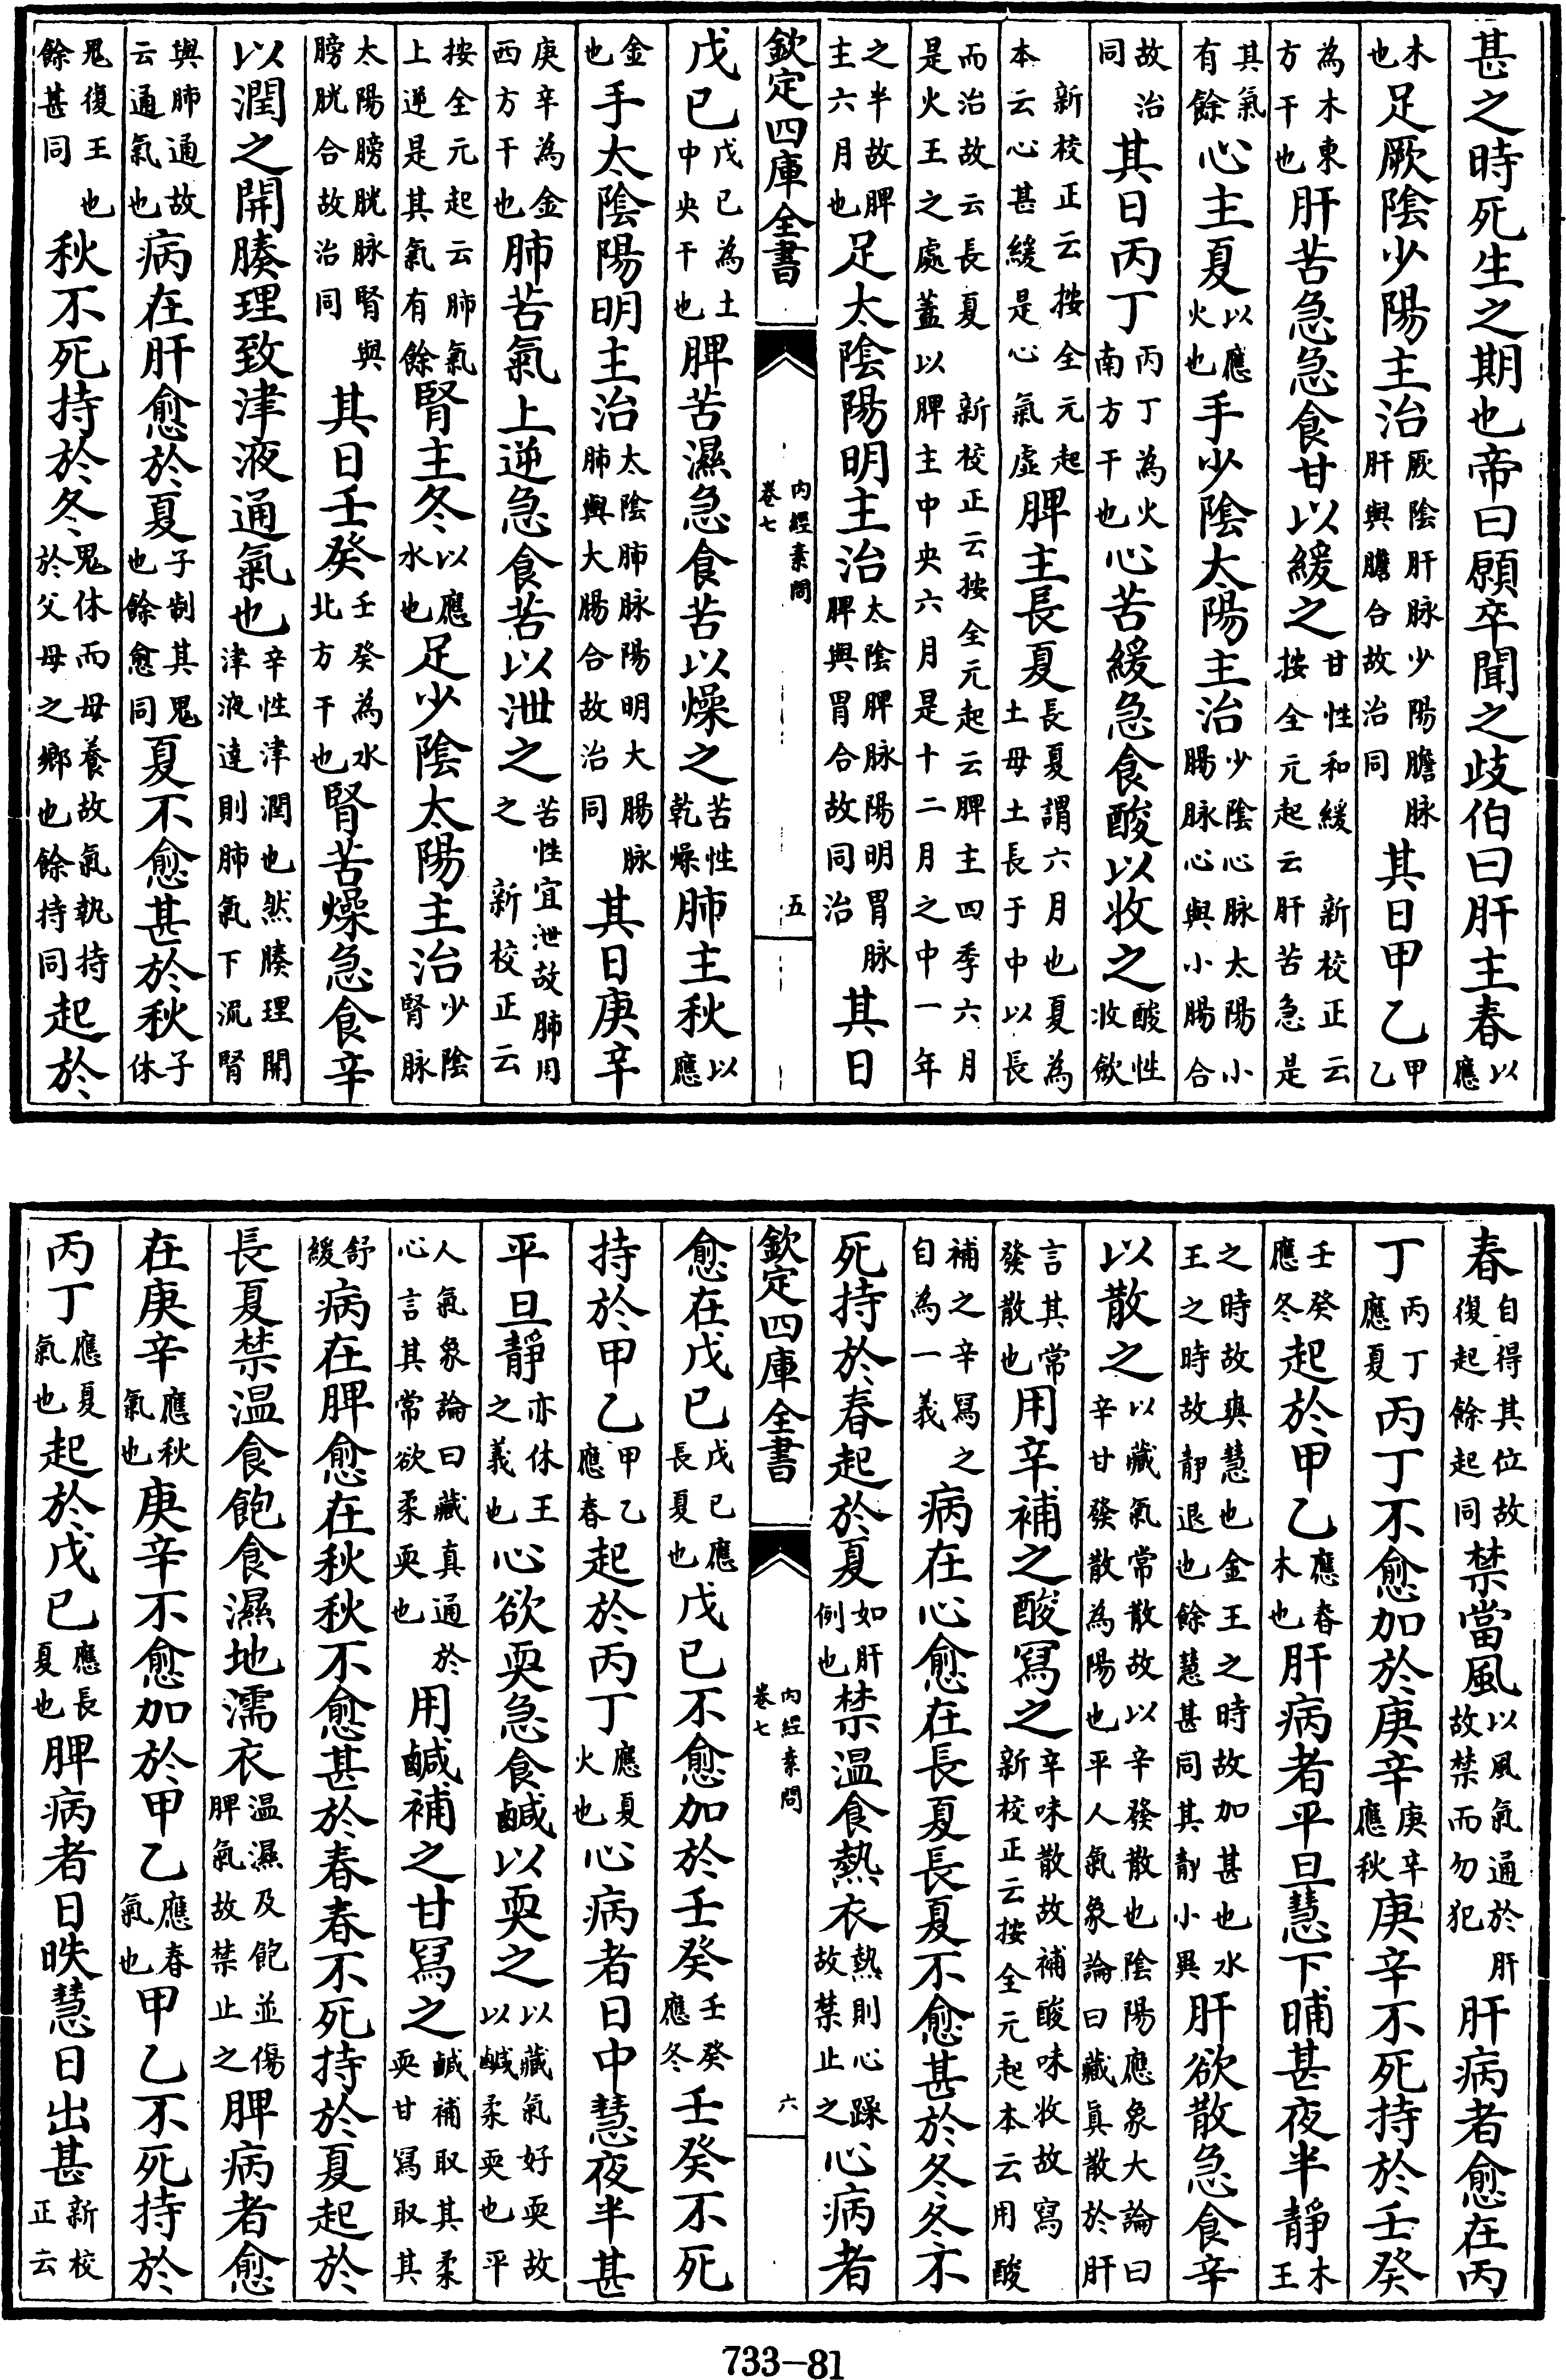 甚之時死生之期也帝曰願卒聞之歧伯曰肝主春以應
木也足厥陰少陽主治厥陰肝脉少陽膽脉肝與膽合故治同其日甲乙甲乙
為木東方干也肝苦急急食甘以緩之甘性和緩 新校正云按全元起云肝苦急是
其氣有餘心主夏以應火也手少陰太陽主治少陰心脉太陽小腸脉心與小腸合
故治同其日丙丁丙丁為火南方干也心苦緩急食酸以收之酸性收斂
新校正云按全元起本云心甚緩是心氣虛脾主長夏長夏謂六月也夏為土母土長于中以長
而治故云長夏 新校正云按全元起云脾主四季六月是火王之處蓋以脾主中央六月是十二月之中一年
之半故脾主六月也足太陰陽明主治太陰脾脉陽明胃脉脾與胃合故同治其日
欽定四庫全書 內經素問 卷七 五
戊己戊己為土中央干也脾苦濕急食苦以燥之苦性乾燥肺主秋以應
金也手太陰陽明主治太陰肺脉陽明大腸脉肺與大腸合故治同其日庚辛
庚辛為金西方干也肺苦氣上逆急食苦以泄之苦性宜泄故肺用之 新校正云
按全元起云肺氣上逆是其氣有餘腎主冬以應水也足少陰太陽主治少陰腎脉
太陽膀胱脉腎與膀胱合故治同其日壬癸壬癸為水北方干也腎苦燥急食辛
以潤之開腠理致津液通氣也辛性津潤也然腠理開津液達則肺氣下流腎
與肺通故云通氣也病在肝愈於夏子制其鬼也餘愈同夏不愈甚於秋子休
鬼復王也餘甚同秋不死持於冬鬼休而母養故氣執持於父母之鄉也餘持同起於
春自得其位故復起餘起同禁當風以風氣通於肝故禁而勿犯肝病者愈在丙
丁丙丁應夏丙丁不愈加於庚辛庚辛應秋庚辛不死持於壬癸
壬癸應冬起於甲乙應春木也肝病者平旦慧下晡甚夜半靜木王
之時故爽慧也金王之時故加甚也水王之時故靜退也餘慧甚同其靜小異肝欲散急食辛
以散之以藏氣常散故以辛發散也陰陽應象大論曰辛甘發散為陽也平人氣象論曰藏真散於肝
言其常發散也用辛補之酸寫之辛味散故補酸味收故寫 新校正云按全元起本云用酸
補之辛寫之自為一義病在心愈在長夏長夏不愈甚於冬冬不
死持於春起於夏如肝例也禁温食熱衣熱則心躁故禁止之心病者
欽定四庫全書 內經素問 卷七 六
愈在戊己戊己應長夏也戊己不愈加於壬癸壬癸應冬壬癸不死
持於甲乙甲乙應春起於丙丁應夏火也心病者日中慧夜半甚
平旦靜亦休王之義也心欲耎急食鹹以耎之以藏氣好耎故以鹹柔耎也平
人氣象論曰藏真通於心言其常欲柔耎也用鹹補之甘寫之鹹補取其柔耎甘寫取其
舒緩病在脾愈在秋秋不愈甚於春春不死持於夏起於
長夏禁温食飽食濕地濡衣温濕及飽並傷脾氣故禁止之脾病者愈
在庚辛應秋氣也庚辛不愈加於甲乙應春氣也甲乙不死持於
丙丁應夏氣也起於戊己應長夏也脾病者日昳慧日出甚新校正云
733-81